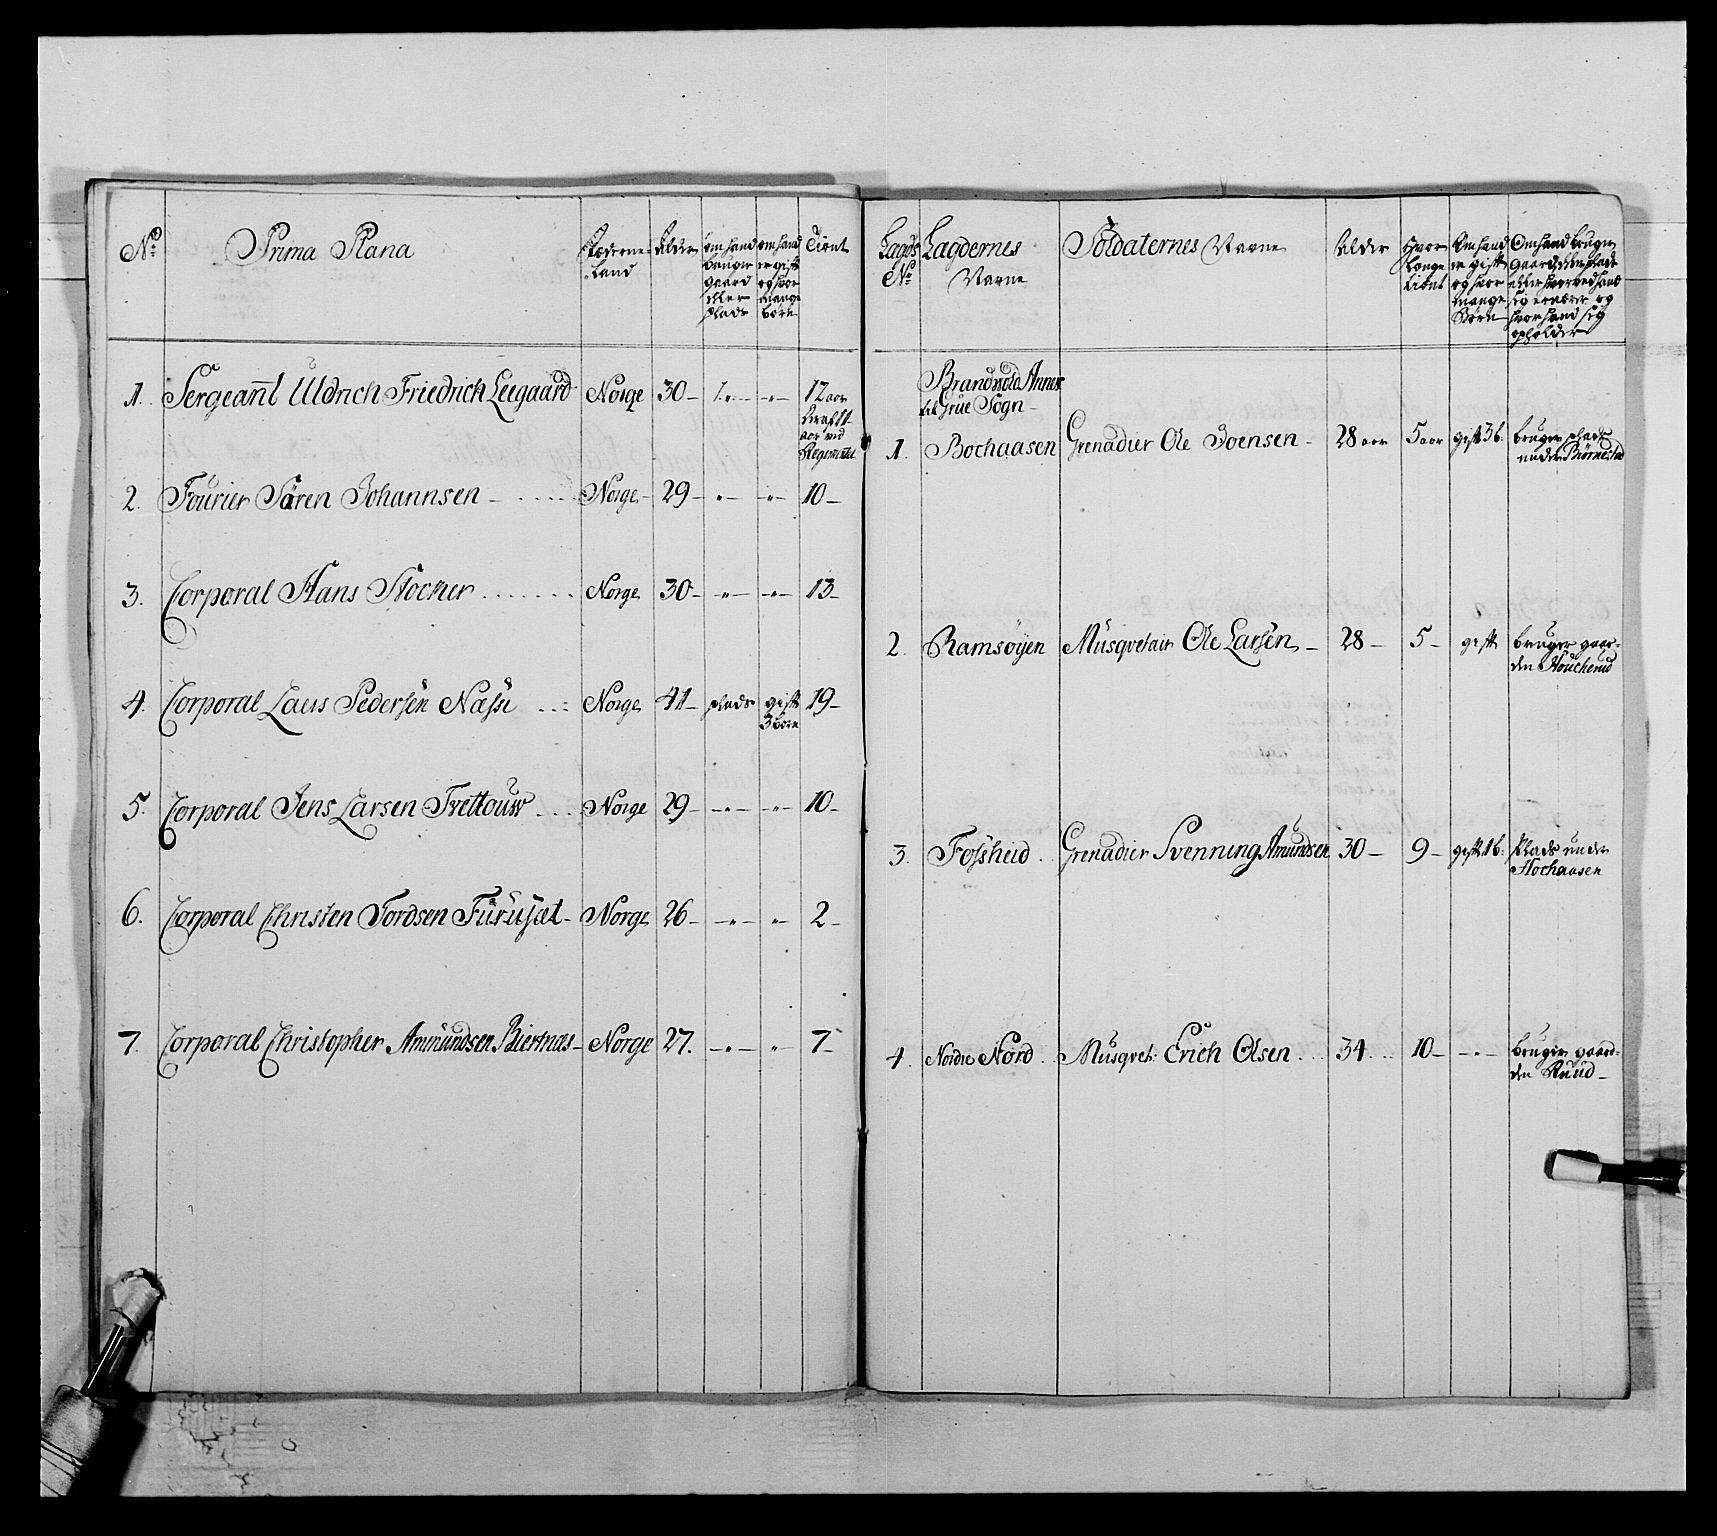 No Prima Plana Føderne Land Alder om hand bruger gaard eller plads om hand er gift og hvor mange børn Tient
1. Sergeant Uldrich Friedrich Leegaard Norge 30 – „ – „ – 12 aar
aar ved
Regimentet
2. Fourier Sören Johannsen – Norge – 29 – „ – „ – 10 –
3. Corporal Hans Stocher Norge 30 – „ – „ – 13 –
4. Corporal Laers Pedersen Næss Norge 41 – plads gift 19 –
3 børn
5. Corporal Jens Larsen Tvettouw Norge 29 – „ – „ – 10 –
6. Corporal Christen Tordsen Furuset – Norge 26 – „ – „ – 2 –
7. Corporal Christopher Ammundsen Biertnæs – Norge 27. – „ – „ – 7 –
Lagds No Lagdernes Navne Soldaternes Navne Alder Hvor Længe tient Om hand er gift og hvor mange Børn Om hand bruger Gaard eller plads eller hvorved hand sig ernærer og hvor hand sig opholder
Brandvold Annex
til Grue Sogn –
1. Bochaasen Grenadier Ole Joensen – 28 aar 5 aar gift 3 b: bruger plads
under Biørnestad
2. Ramsøyen Musqvetair Ole Larsen – 28 – 5 – gift bruger gaar-
den Houcherud
3. Fossheid Grenadier Svenning Amundsen 30 – 9 – gift 1 b: Plads under
Hochaasen
4. Nordre Nord Musqvet: Erich Olsen 34 10 – „ – bruger gaard-
den Ruud –